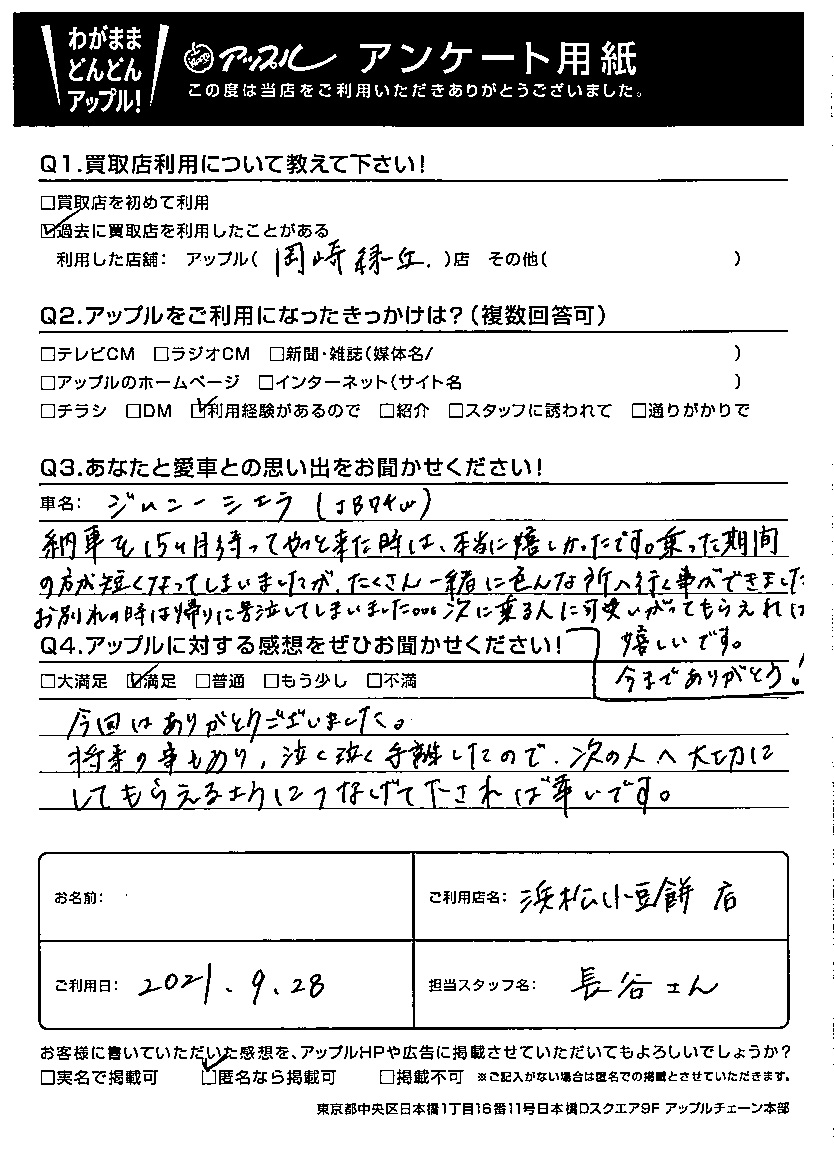 わがまま
どんどん
アップル!
アップル アンケート用紙
この度は当店をご利用いただきありがとうございました。
Q1.買取店利用について教えて下さい!
□買取店を初めて利用
☑過去に買取店を利用したことがある
利用した店舗: アップル( 岡崎緑丘. )店 その他( )
Q2.アップルをご利用になったきっかけは?(複数回答可)
□テレビCM □ラジオCM □新聞・雑誌(媒体名/ )
□アップルのホームページ □インターネット(サイト名 )
□チラシ □DM ☑利用経験があるので □紹介 □スタッフに誘われて □通りがかりで
Q3.あなたと愛車との思い出をお聞かせください!
車名: ジムニーシエラ (JB74W)
納車を15ヶ月待ってやっと来た時は、本当に嬉しかったです。乗った期間
の方が短くなってしまいましたが、たくさん一緒に色んな所へ行く事ができました
お別れの時は帰りに号泣してしまいました... 次に乗る人に可愛いがってもらえれば
嬉しいです。
今までありがとう!
Q4.アップルに対する感想をぜひお聞かせください!
□大満足 ☑満足 □普通 □もう少し □不満
今回はありがとうございました。
将来の事もあり、泣く泣く手離したので、次の人へ大切に
してもらえるようにつなげて下されば幸いです。
お名前:
ご利用店名: 浜松小豆餅店
ご利用日: 2021.9.28
担当スタッフ名: 長谷さん
お客様に書いていただいた感想を、アップルHPや広告に掲載させていただいてもよろしいでしょうか?
□実名で掲載可 ☑匿名なら掲載可 □掲載不可 ※ご記入がない場合は匿名での掲載とさせていただきます。
東京都中央区日本橋1丁目16番11号日本橋Dスクエア9F アップルチェーン本部